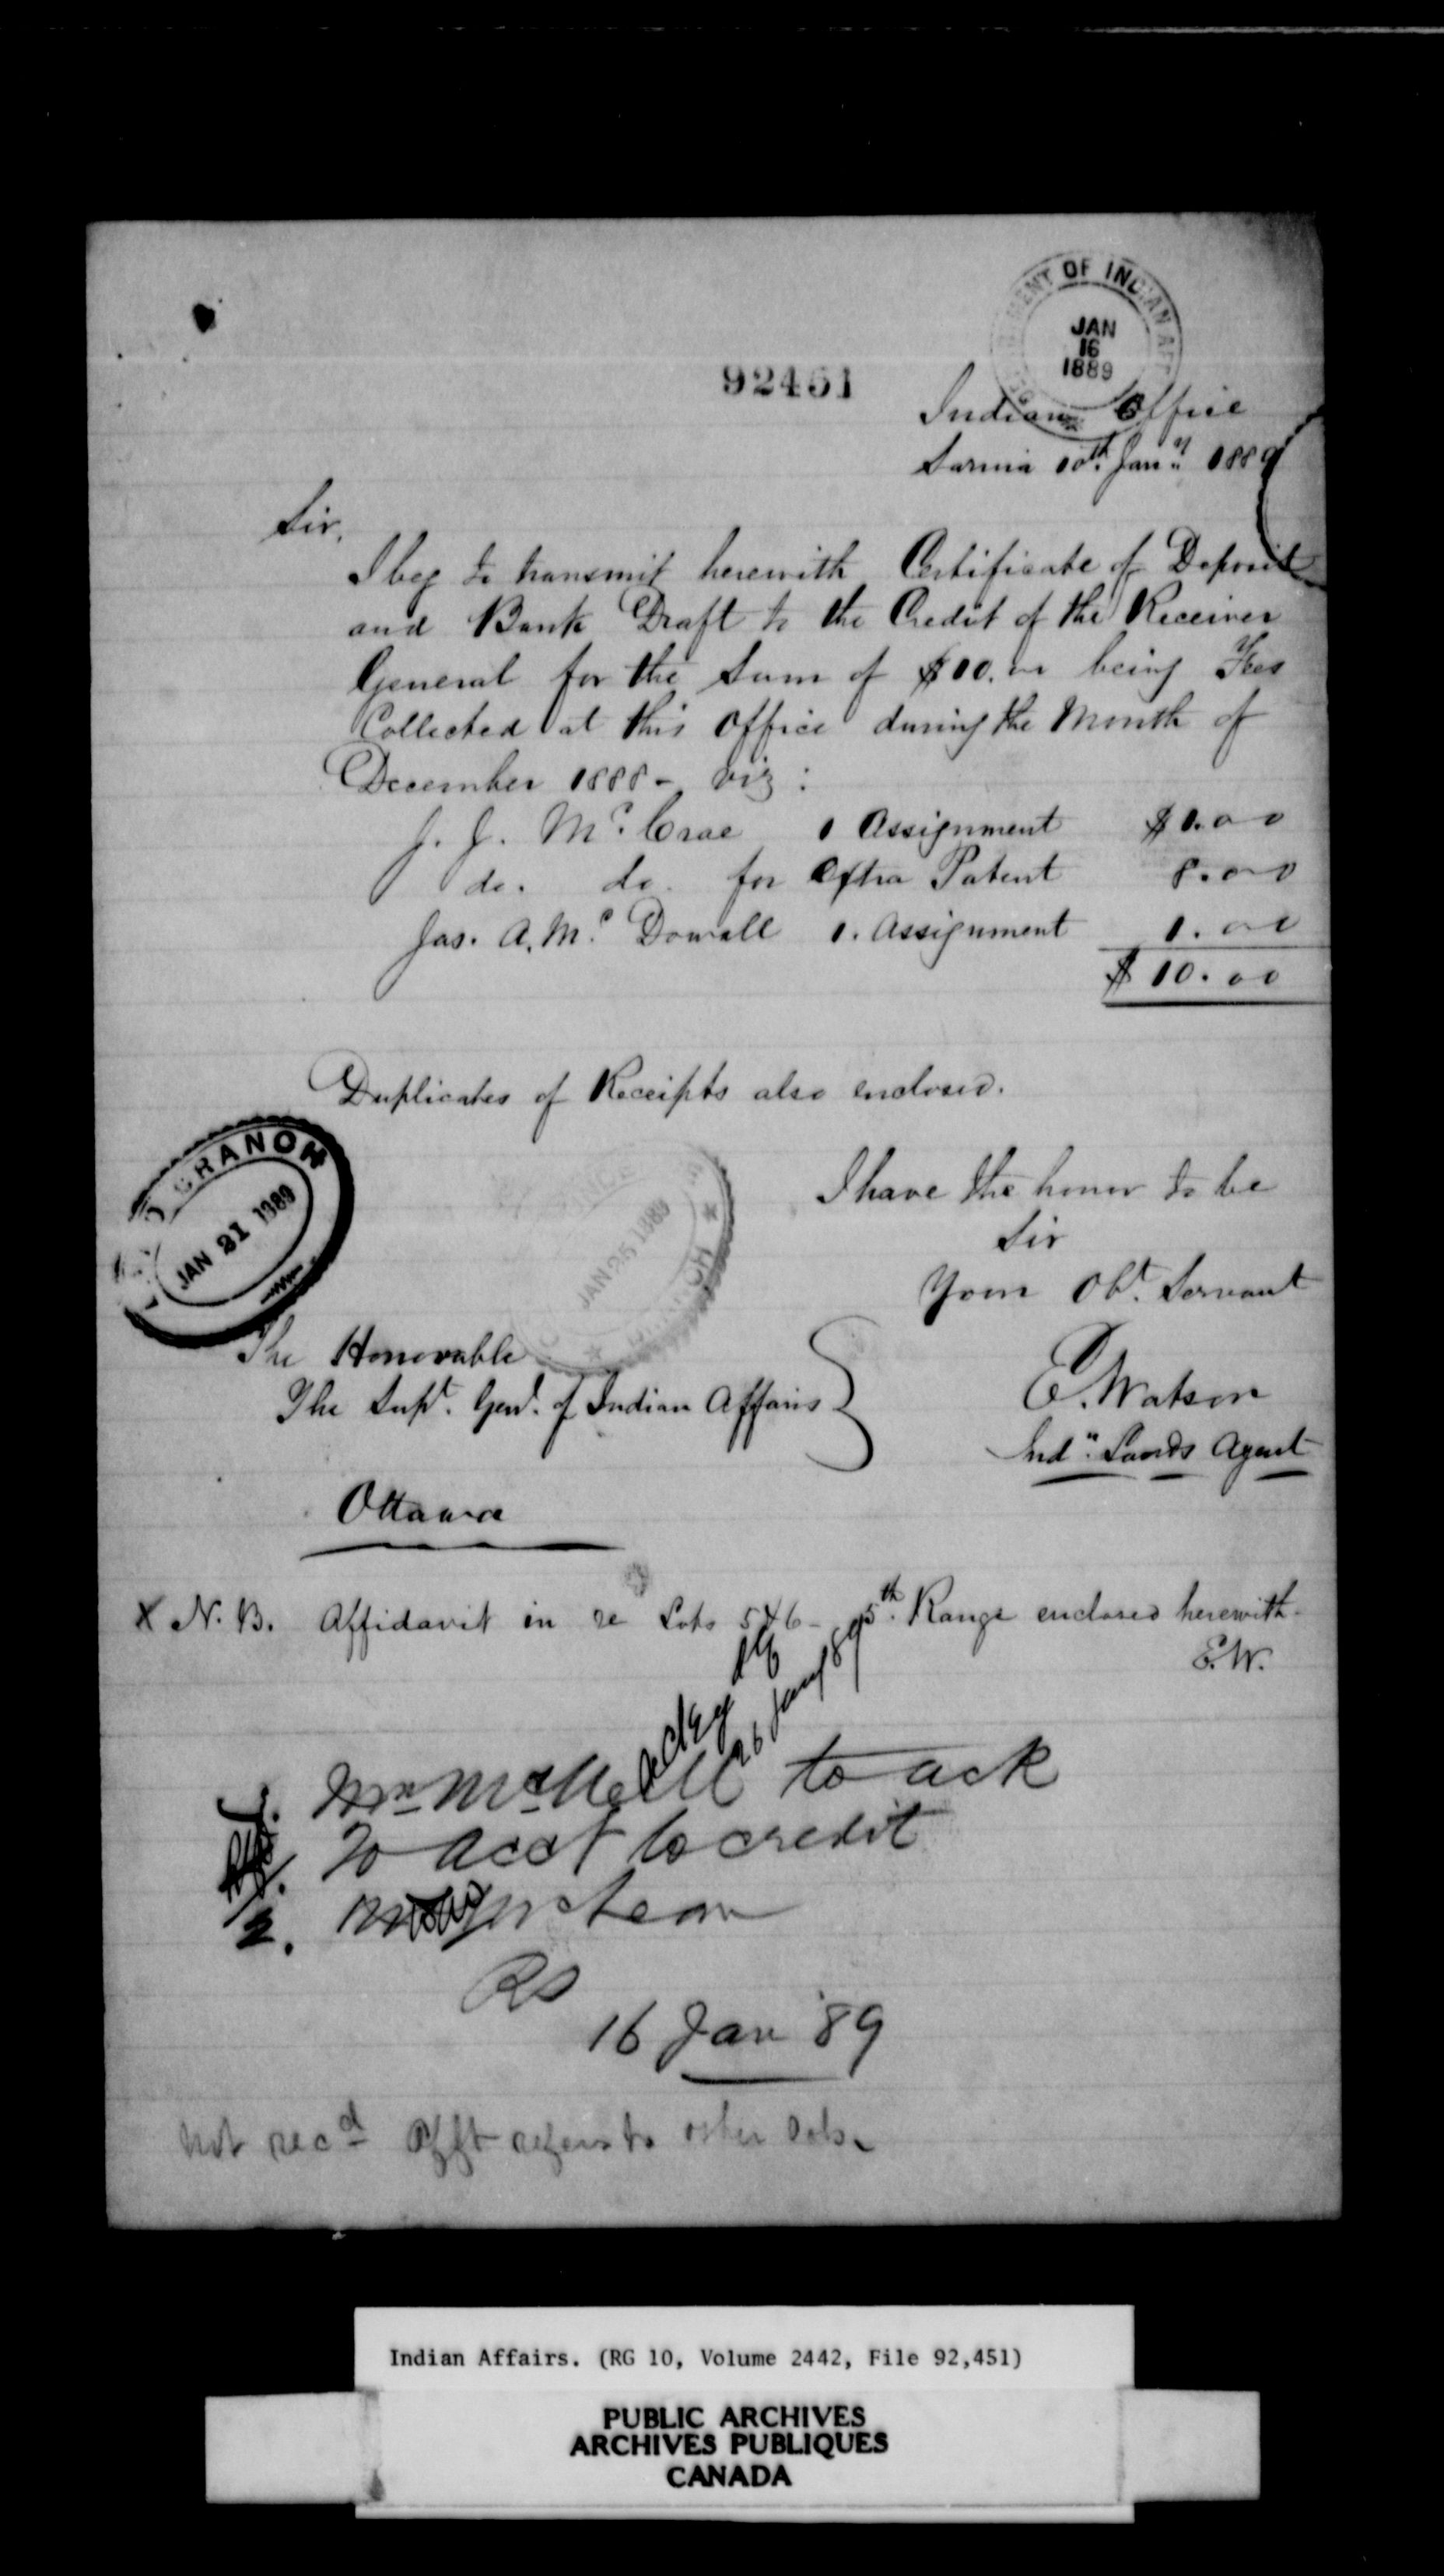 DEPARTMENT OF INDIAN AFF
JAN
16
1889
92451
Indian Office
Sarnia 10th Jany 1889
Sir,
I beg to transmit herewith Certificate of Deposit
and Bank Draft to the Credit of the Receiver
General for the Sum of $10.00 being Fees
Collected at this Office during the Month of
December 1888 - viz:
J. J. McCrae 1 Assignment $1.00
do. do. for Extra Patent 8.00
Jas. A. McDowall 1. Assignment 1.00
$10.00
Duplicates of Receipts also enclosed.
BRANCH
JAN 21 1889
JAN 25 1889
BRANCH
I have the honor to be
Sir
Your Obt. Servant
E. Watson
Indn. Lands Agent
The Honorable
The Supt. Genl. of Indian Affairs
Ottawa
X N.B. Affidavit in re Lots 5 & 6 - 5th. Range enclosed herewith -
E.W.
26 Jany 89
Mr to ack
To acct to credit
RS
16 Jan '89
not recd Afft refers to other Lots
Indian Affairs. (RG 10, Volume 2442, File 92,451)
PUBLIC ARCHIVES
ARCHIVES PUBLIQUES
CANADA